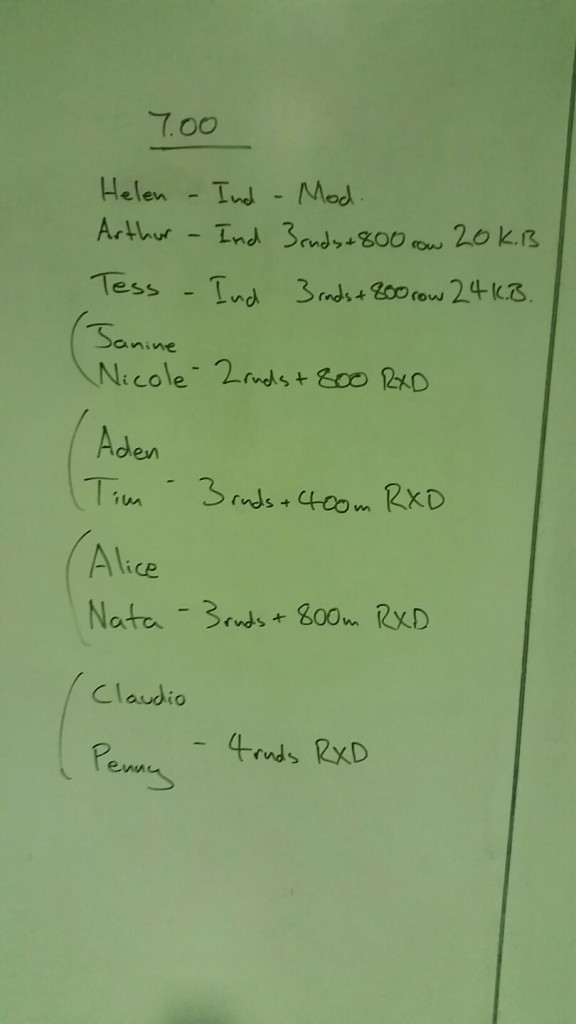 7.00
Helen - Ind - Mod.
Arthur - Ind 3rnds+800 row 20 K.B
Tess - Ind 3rnds+800row 24K.B.
Janine
Nicole - 2rnds + 800 RXD
Aden
Tim - 3rnds + 400m RXD
Alice
Nata - 3rnds + 800m RXD
Claudio
Penny - 4rnds RXD